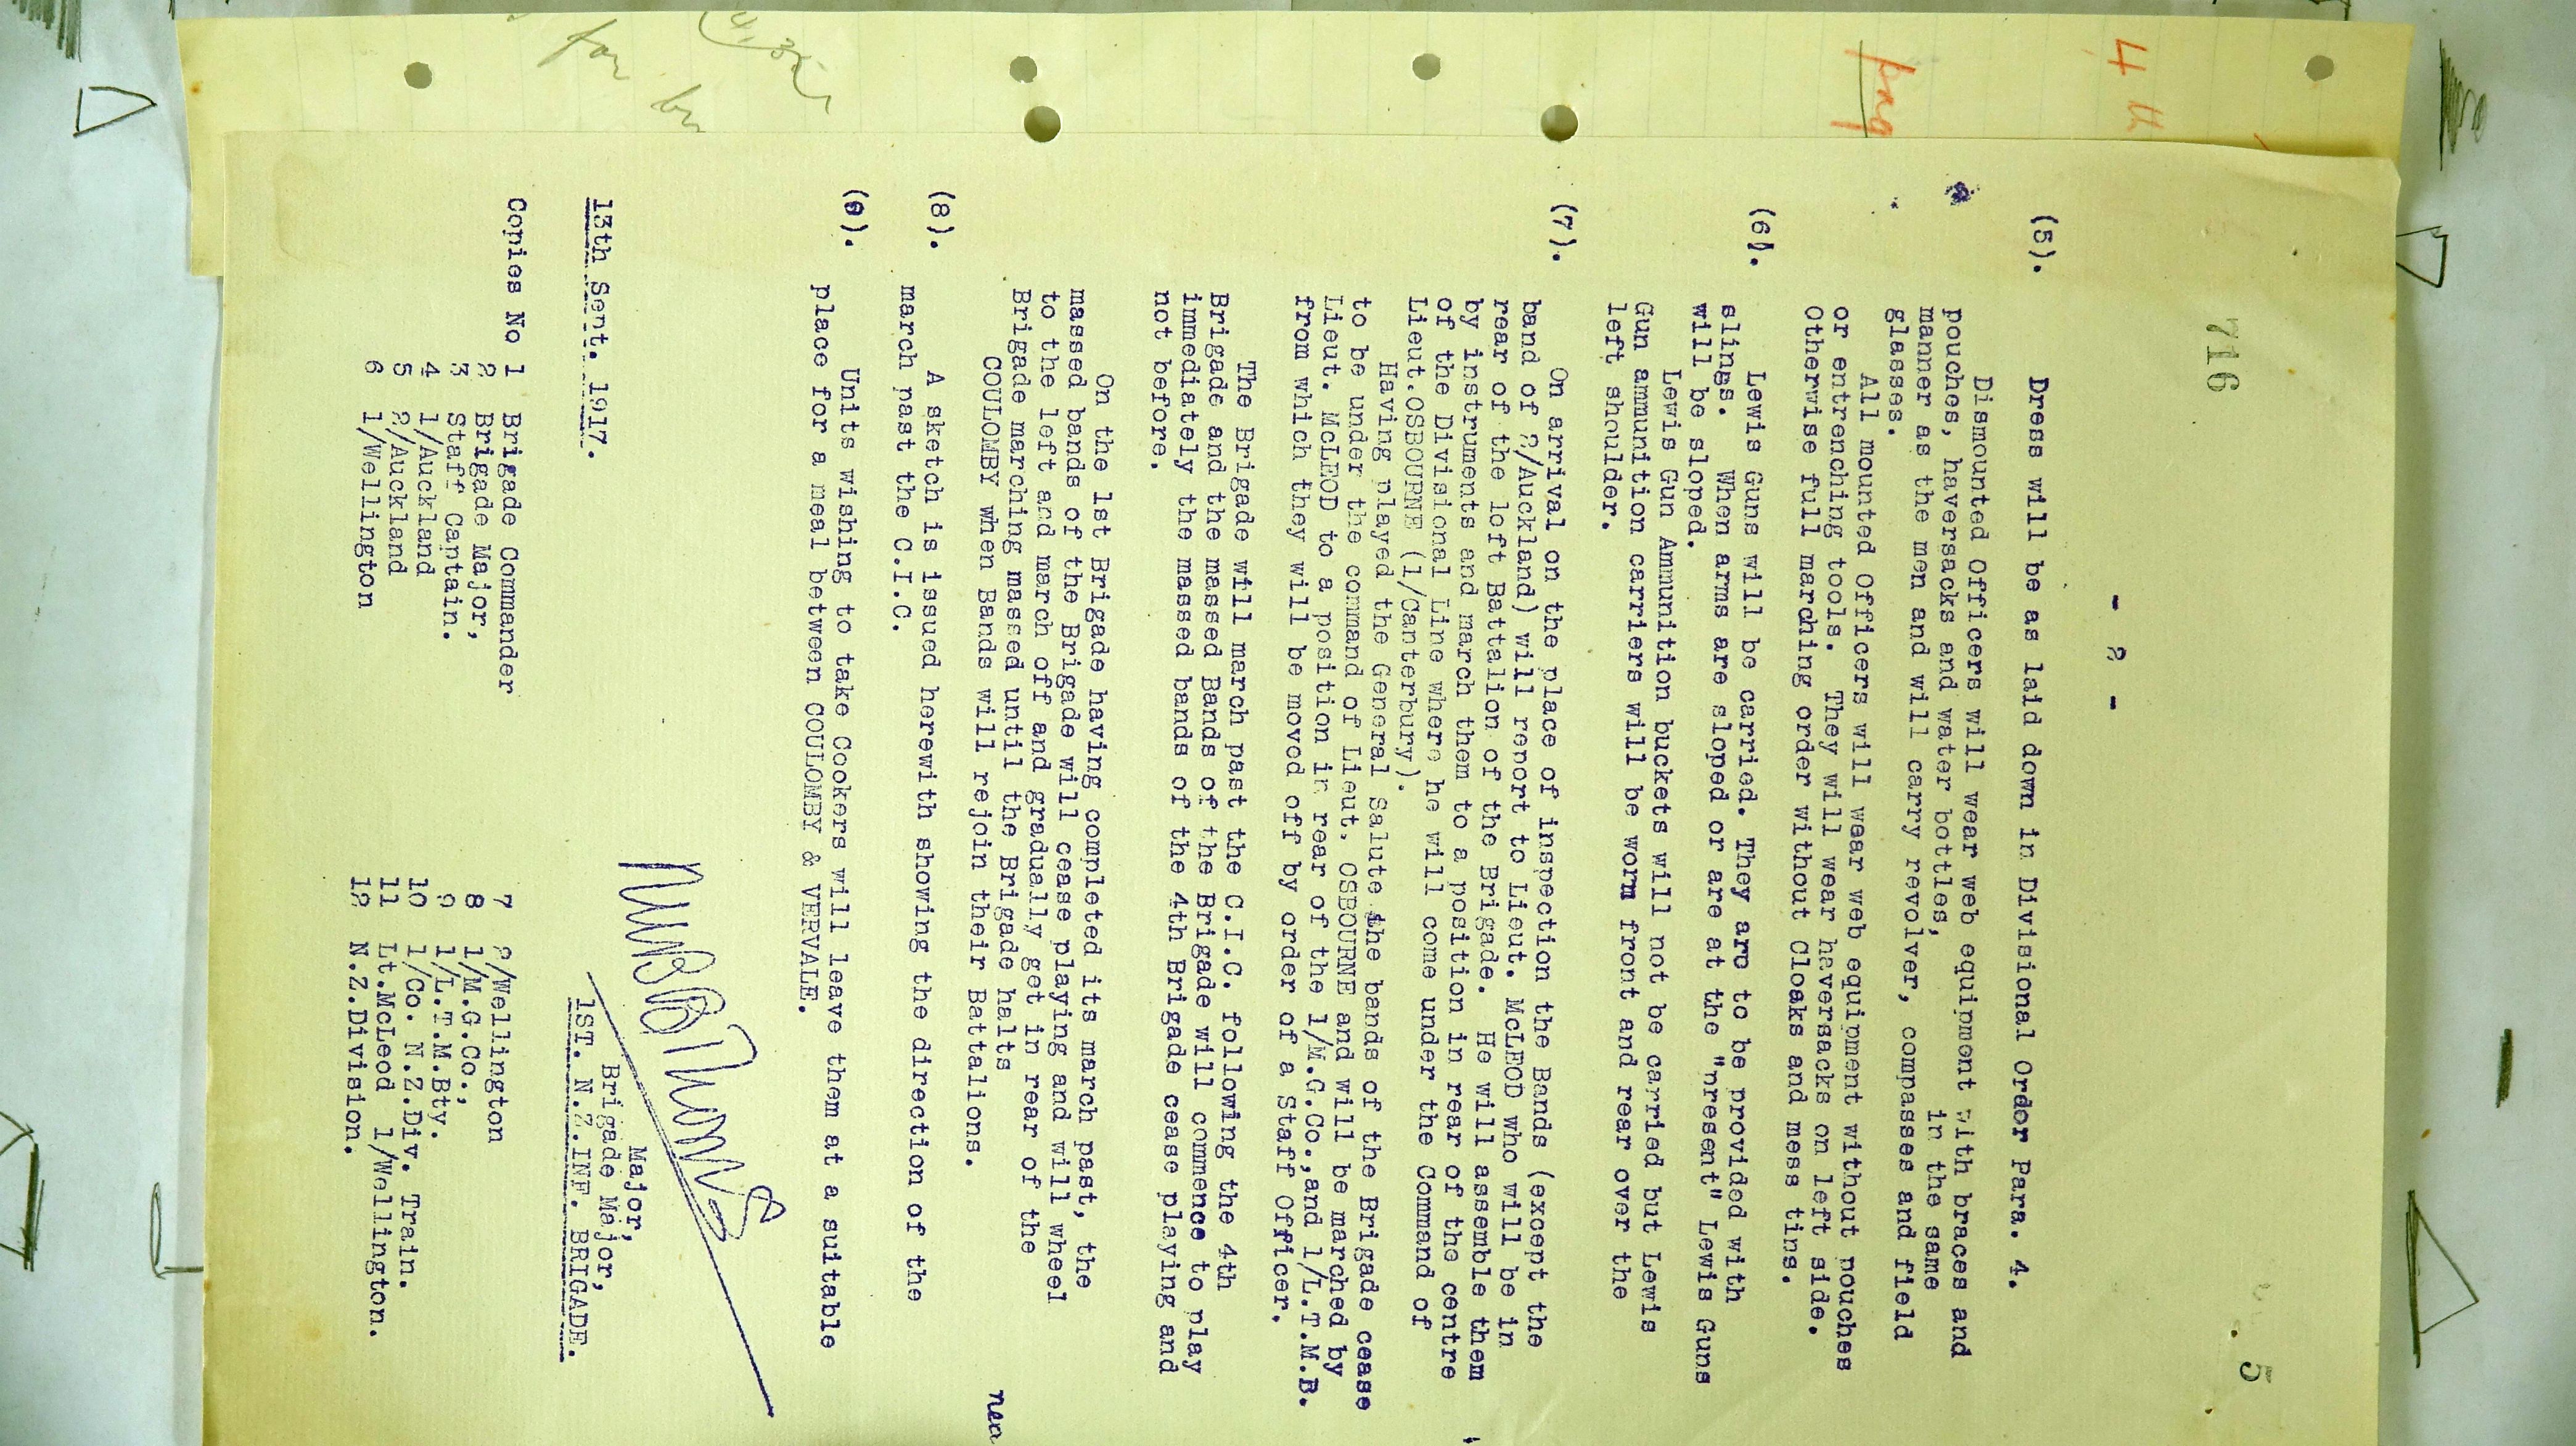 716
5
- 2 -
(5). Dress will be as laid down in Divisional Order Para. 4.
Dismounted Officers will wear web equipment with braces and
pouches, haversacks and water bottles, in the same
manner as the men and will carry revolver, compasses and field
glasses.
All mounted Officers will wear web equipment without pouches
or entrenching tools. They will wear haversacks on left side.
Otherwise full marching order without Cloaks and mess tins.
(6). Lewis Guns will be carried. They are to be provided with
slings. When arms are sloped or are at the "present" Lewis Guns
will be sloped.
Lewis Gun Ammunition buckets will not be carried but Lewis
Gun ammunition carriers will be worn front and rear over the
left shoulder.
(7). On arrival on the place of inspection the Bands (except the
band of 2/Auckland) will report to Lieut. McLEOD who will be in
rear of the left Battalion of the Brigade. He will assemble them
by instruments and march them to a position in rear of the centre
of the Divisional Line where he will come under the Command of
Lieut.OSBOURNE (1/Canterbury).
Having played the General Salute the bands of the Brigade cease
to be under the command of Lieut. OSBOURNE and will be marched by
Lieut. McLEOD to a position in rear of the 1/M.G.Co.,and 1/L.T.M.B.
from which they will be moved off by order of a Staff Officer.
The Brigade will march past the C.I.C. following the 4th
Brigade and the massed Bands of the Brigade will commence to play
immediately the massed bands of the 4th Brigade cease playing and
not before.
On the 1st Brigade having completed its march past, the
massed bands of the Brigade will cease playing and will wheel
to the left and march off and gradually get in rear of the
Brigade marching massed until the Brigade halts
COULOMBY when Bands will rejoin their Battalions.
nea
(8). A sketch is issued herewith showing the direction of the
march past the C.I.C.
(9). Units wishing to take Cookers will leave them at a suitable
place for a meal between COULOMBY & VERVALE.
Major,
Brigade Major,
13th Sept. 1917. 1ST. N.Z.INF. BRIGADE.
Copies No 1 Brigade Commander 7 2/Wellington
2 Brigade Major, 8 1/M.G.Co.,
3 Staff Captain. 9 1/L.T.M.Bty.
4 1/Auckland 10 1/Co. N.Z.Div. Train.
5 2/Auckland 11 Lt.McLeod 1/Wellington.
6 1/Wellington 12 N.Z.Division.
4th
for